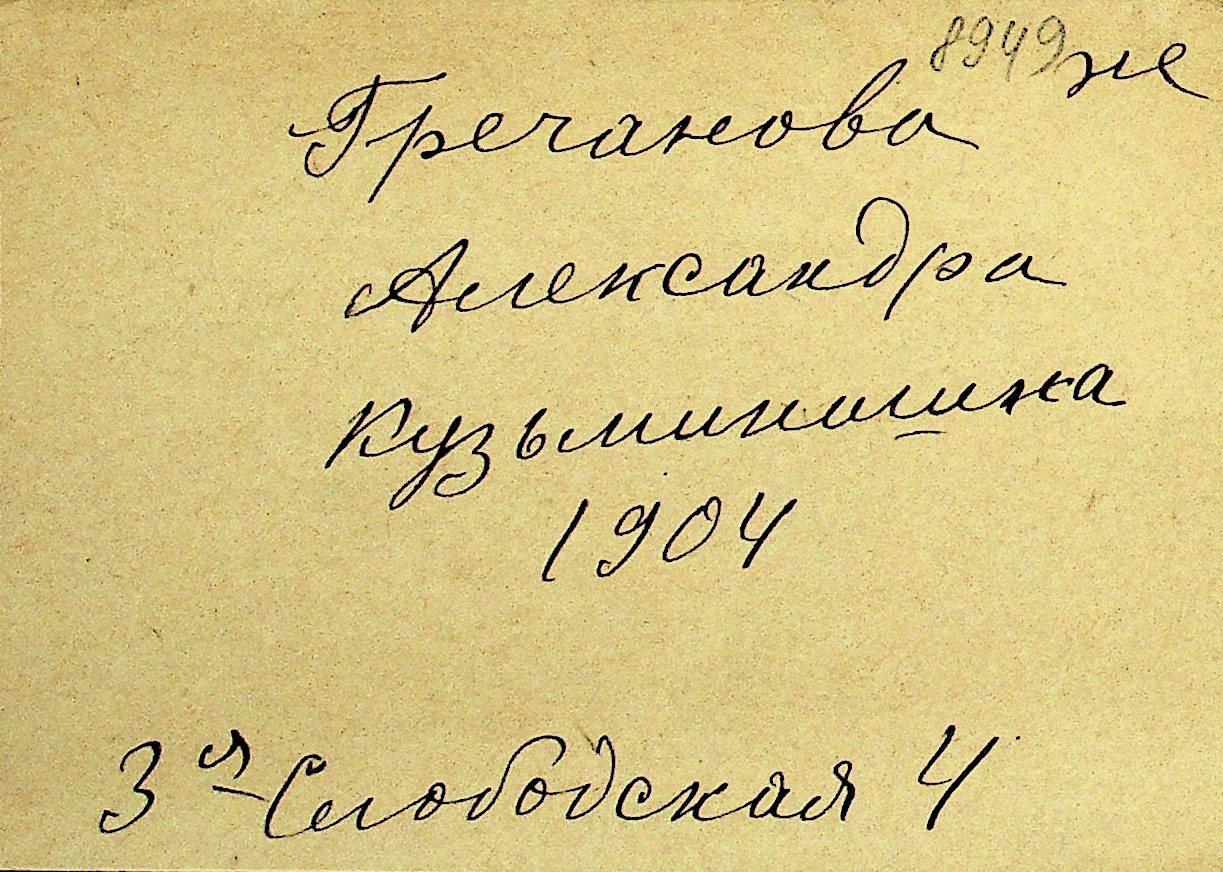 8949
Гречанова
Александра
Кузьминишна
1904
3 я Слободская 4